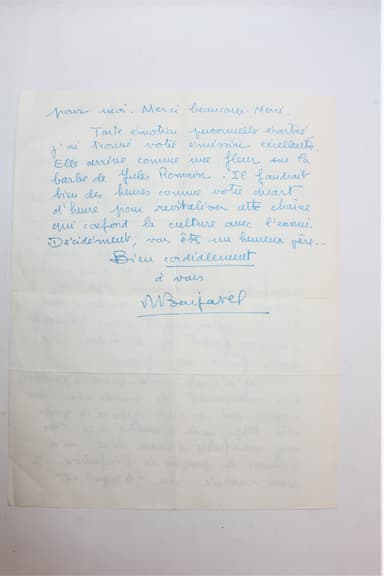 pour moi. Merci beaucoup. Merci.
Toute émotion personnelle écartée
j'ai trouvé votre émission excellente.
Elle arrive comme une fleur sur la
barbe de Jules Romain. Il faudrait
bien des heures comme votre quart
d'heure pour revitaliser cette chaîne
qui confond la culture avec l'ennui.
Décidément, vous êtes un heureux père...
Bien cordialement
à vous
Barjavel